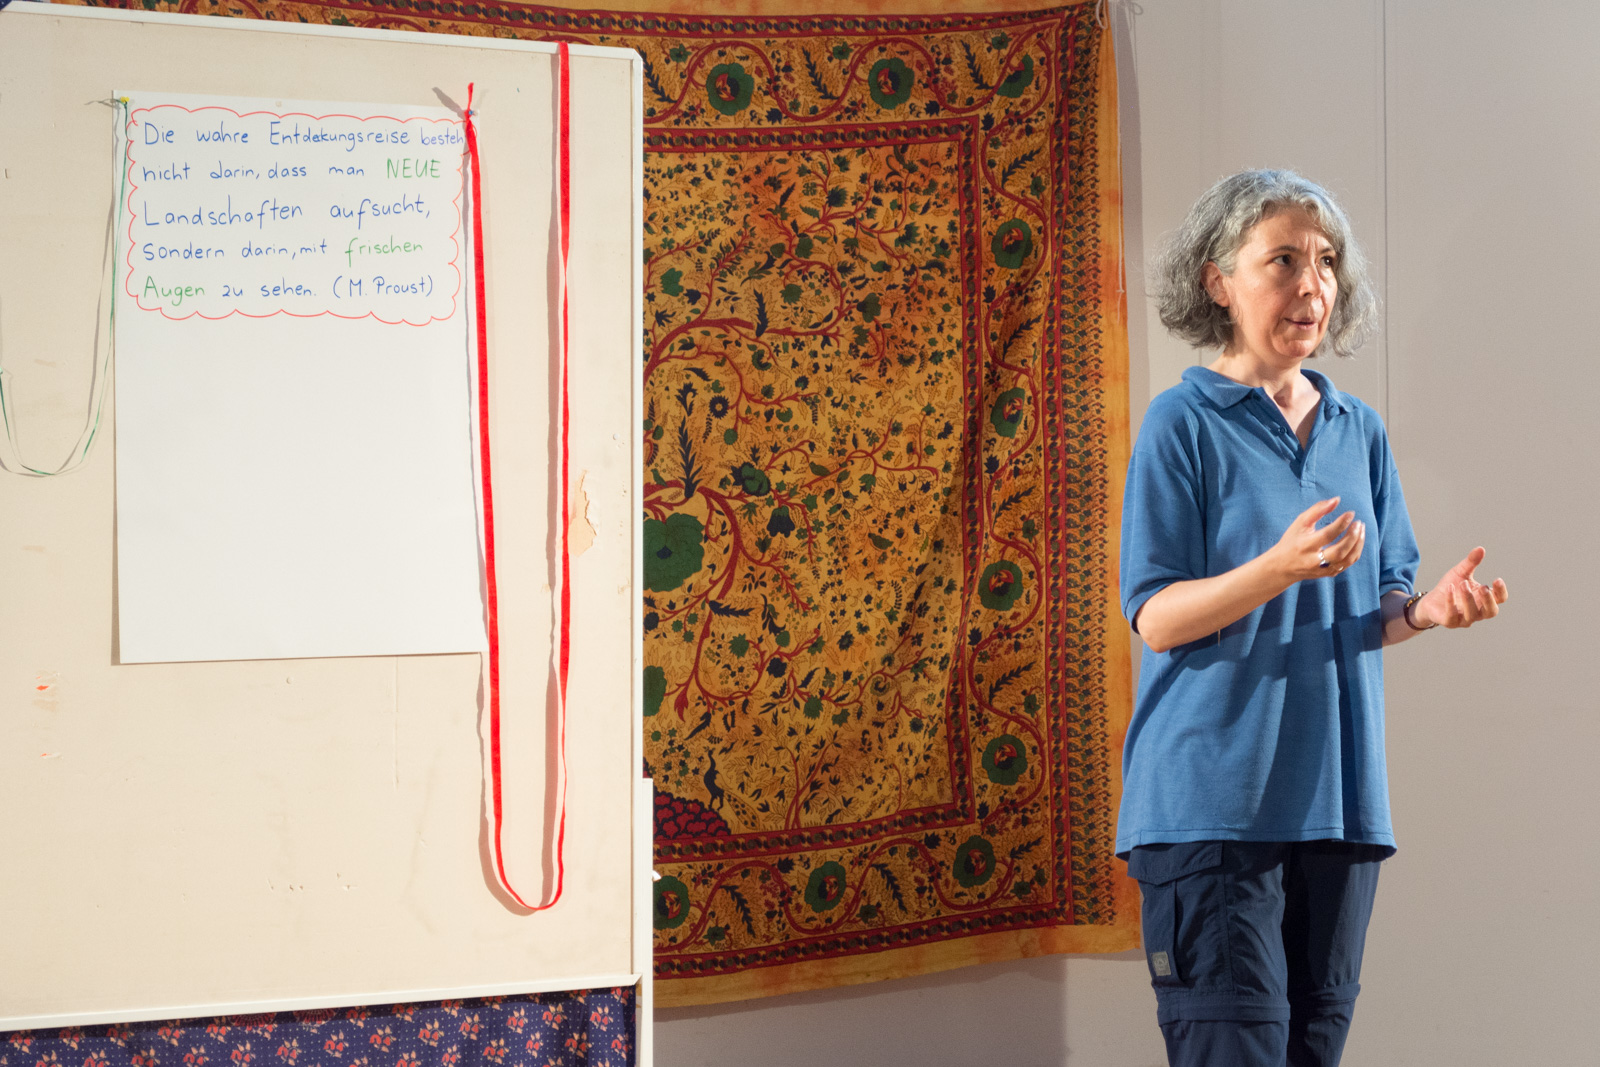 Die wahre Entdekungsreise besteh
nicht darin, dass man NEUE
Landschaften aufsucht,
sondern darin, mit frischen
Augen zu sehen. (M. Proust)